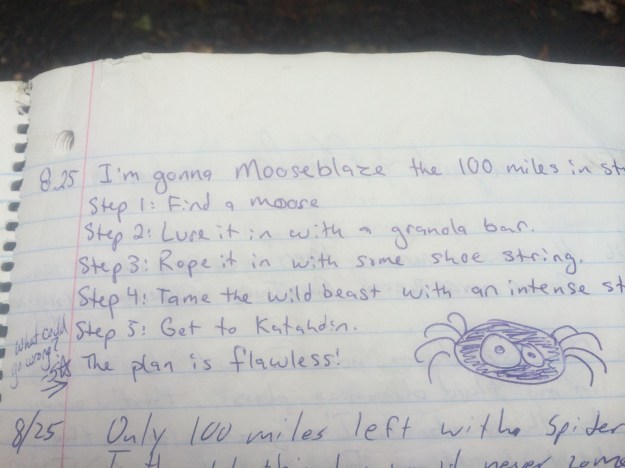 8.25 I'm gonna Mooseblaze the 100 miles in st
Step 1: Find a moose
Step 2: Lure it in with a granola bar.
Step 3: Rope it in with some shoe string.
Step 4: Tame the wild beast with an intense st
Step 5: Get to Katahdin.
what could
go wrong?
The plan is flawless!
8/25 Only 100 miles left with a Spider